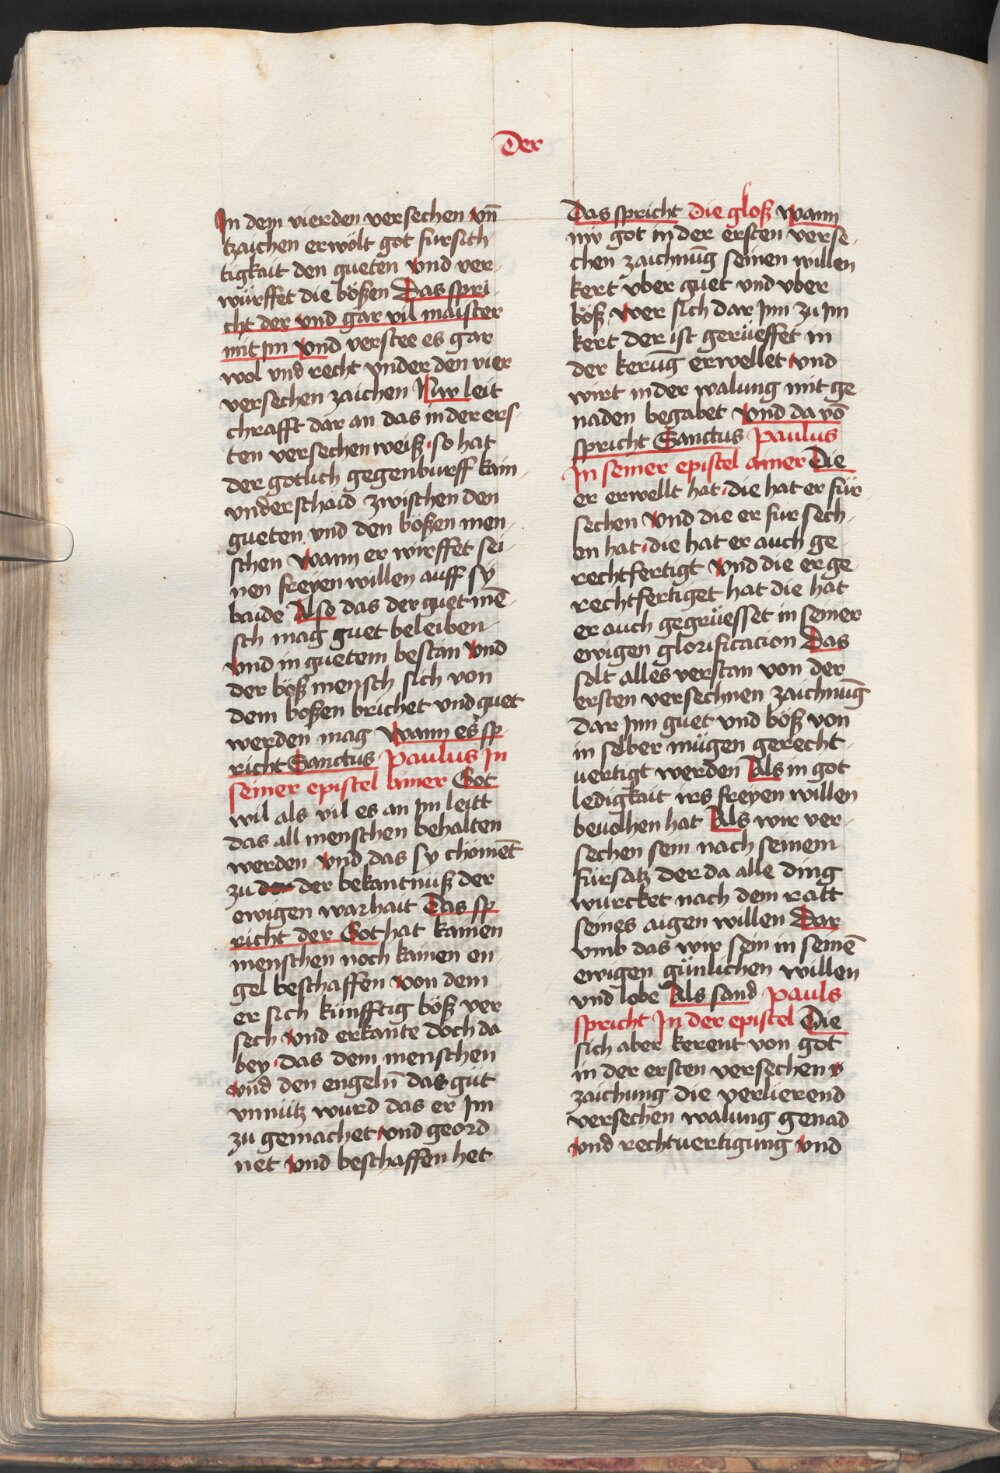 Der
In dem vierden versechen vn̄
tzaichen erwölt got fursich
tigkait den gueten vnd ver
würffet die bößen Das spri
cht der vnd gar vil maister
mit im Vnd verstee es gar
wol vnd recht vnder den vier
versechen zaichen Nw leit
chrafft dar an das in der ers
ten versechen weiß so hat
der gotlich gegenburff kain
vnderschaid zwischen den
gueten vnd den bößen men
schen wann er wirffet sei
nen freyen willen auff sy
baide Also das der guet mē
sch mag guet beleiben
vnd in guetem bestan Vnd
der böß mensch sich von
dem bößen brichet vnd guet
werden mag Wann es sp
richt Sanctus Paulus In
seiner epistel ainer Got
wil als vil es an im leitt
das all menschen behalten
werden vnd das sy chömēt
zu der bekantnuß der
ewigen warhait Das sp
richt der Got hat kainen
menschen noch kainen en
gel beschaffen von dem
er sich kunfftig böß ver
sech vnd erkante doch da
bey das dem menschen
vnd den engeln̄ das gut
vnnütz wurd das er Im
zu gemachet vnd geord
net vnd beschaffen het
Das spricht die gloß wann
nw got in der ersten verse
chen zaichnūg seinen willen
kert vber guet vnd vber
böß wer sich dar Inn zu Im
kert der ist gerüeffet in
der kerūg erwellet vnd
wirt in der walung mit ge
naden begabet Vnd da vō
spricht Sanctus Paulus
In seiner epistel ainer Die
er erwellt hat die hat er für
sechen Vnd die er fur sech
en hat die hat er auch ge
rechtfertigt Vnd die er ge
rechtfertiget hat die hat
er auch gegrüesset in seiner
ewigen glorificacion Das
solt alles verstan von der
ersten versechnen zaichnūg
dar Inn guet vnd böß von
in selber mügen gerecht
uertigt werden Als in got
ledigkait irs freyen willen
beuolhen hat Als wir ver
sechen sein nach seinem
fürsatz der da alle ding
wurcket nach dem ratt
seines aigen willen Dar
vmb das wir sein in seinē
ewigen günlichen willen
vnd lobe Als sand Pauls
spricht In der epistel Die
sich aber kerent von got
in der ersten versechen
zaichung die verlierend
versechen walung genad
vnd rechtuertigung vnd